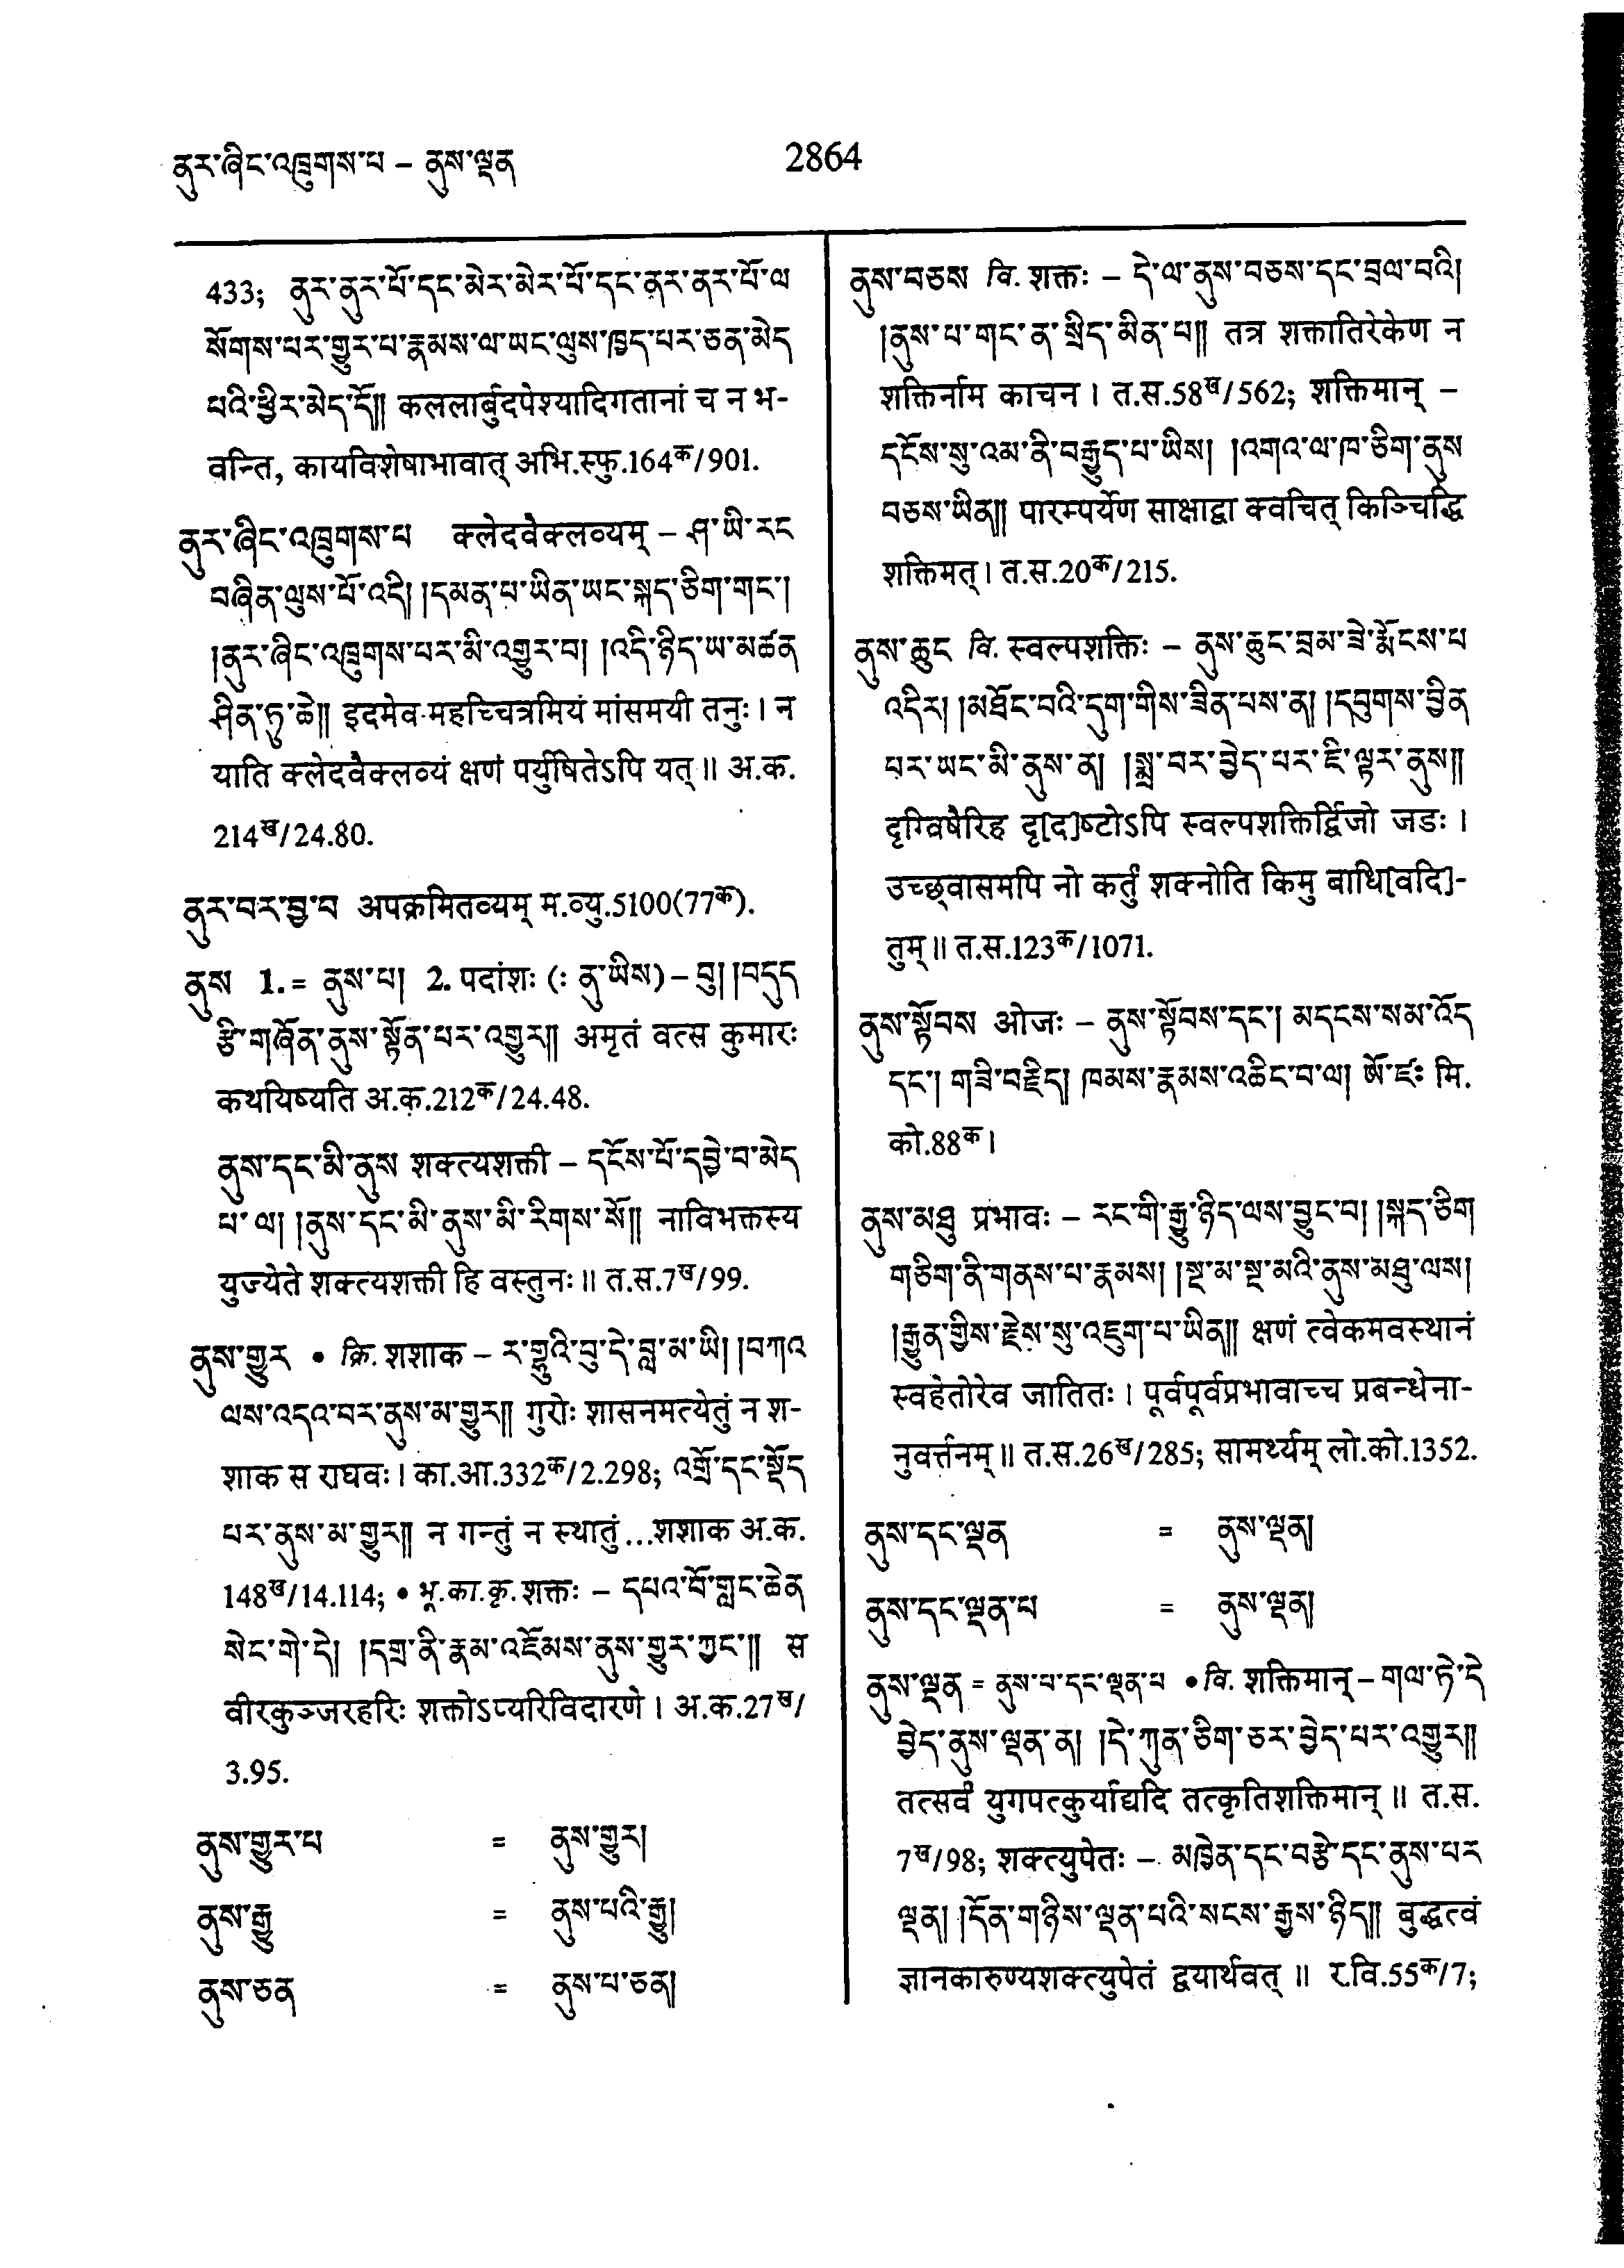 ནུར་ཞིང་འཁྲུགས་པ – ནུས་ལྡན
2864
433; ནུར་ནུར་པོ་དང་མེར་མེར་པོ་དང་ནར་ནར་པོ་ལ
སོགས་པར་གྱུར་པ་རྣམས་ལ་ཡང་ལུས་ཁྱད་པར་ཅན་མེད
པའི་ཕྱིར་མེད་དོ།། कललार्बुदपेश्यादिगतानां च न भ-
वन्ति, कायविशेषाभावात् अभि.स्फु.164क/901.
ནུར་ཞིང་འཁྲུགས་པ क्लेदवैक्लव्यम् – ཤ་ཡི་རང
བཞིན་ལུས་པོ་འདི། །དམན་པ་ཡིན་ཡང་སྐད་ཅིག་གང་།
།ནུར་ཞིང་འཁྲུགས་པར་མི་འགྱུར་བ། །འདི་ཉིད་ཡ་མཚན
ཤིན་ཏུ་ཆེ།། इदमेव महच्चित्रमियं मांसमयी तनुः। न
याति क्लेदवैक्लव्यं क्षणं पर्युषितेऽपि यत्॥ अ.क.
214ख/24.80.
ནུར་བར་བྱ་བ अपक्रमितव्यम् म.व्यु.5100(77क).
ནུས 1.= ནུས་པ། 2. पदांशः (: ནུ་ཡིས) – བུ། །བདུད
རྩི་གཞོན་ནུས་སྟོན་པར་འགྱུར།། अमृतं वत्स कुमारः
कथयिष्यति अ.क.212क/24.48.
ནུས་དང་མི་ནུས शक्त्यशक्ती – དངོས་པོ་དབྱེ་བ་མེད
པ་ལ། །ནུས་དང་མི་ནུས་མི་རིགས་སོ།། नाविभक्तस्य
युज्येते शक्त्यशक्ती हि वस्तुनः॥ त.स.7ख/99.
ནུས་གྱུར • क्रि. शशाक – ར་གྷུའི་བུ་དེ་བླ་མ་ཡི། །བཀའ
ལས་འདའ་བར་ནུས་མ་གྱུར།། गुरोः शासनमत्येतुं न श-
शाक स राघवः। का.आ.332क/2.298; འགྲོ་དང་སྡོད
པར་ནུས་མ་གྱུར།། न गन्तुं न स्थातुं ...शशाक अ.क.
148ख/14.114; • भू.का.कृ. शक्तः – དཔའ་བོ་གླང་ཆེན
སེང་གེ་དེ། །དགྲ་ནི་རྣམ་འཇོམས་ནུས་གྱུར་ཀྱང་།། स
वीरकुञ्जरहरिः शक्तोऽप्यरिविदारणे। अ.क.27ख/
3.95.
ནུས་གྱུར་པ = ནུས་གྱུར།
ནུས་རྒྱུ = ནུས་པའི་རྒྱུ།
ནུས་ཅན = ནུས་པ་ཅན།
ནུས་བཅས वि. शक्तः – དེ་ལ་ནུས་བཅས་དང་བྲལ་བའི།
།ནུས་པ་གང་ན་སྲིད་མིན་པ།། तत्र शक्तातिरेकेण न
शक्तिर्नाम काचन। त.स.58ख/562; शक्तिमान् –
དངོས་སུ་འམ་ནི་བརྒྱུད་པ་ཡིས། །འགའ་ལ་ཁ་ཅིག་ནུས
བཅས་ཡིན།། पारम्पर्येण साक्षाद्वा क्वचित् किञ्चिद्धि
शक्तिमत्। त.स.20क/215.
ནུས་ཆུང वि. स्वल्पशक्तिः – ནུས་ཆུང་བྲམ་ཟེ་རྨོངས་པ
འདིར། །མཐོང་བའི་དུག་གིས་ཟིན་པས་ན། །དབུགས་བྱིན
པར་ཡང་མི་ནུས་ན། །སྨྲ་བར་བྱེད་པར་ཇི་ལྟར་ནུས།།
दृग्विषैरिह दृ[द]ष्टोऽपि स्वल्पशक्तिर्द्विजो जडः।
उच्छ्वासमपि नो कर्तुं शक्नोति किमु बाधि[वदि]-
तुम्॥ त.स.123क/1071.
ནུས་སྟོབས ओजः – ནུས་སྟོབས་དང་། མདངས་སམ་འོད
དང་། གཟི་བརྗིད། ཁམས་རྣམས་འཆིང་བ་ལ། ཨོ་ཛཿ मि.
को.88क।
ནུས་མཐུ प्रभावः – རང་གི་རྒྱུ་ཉིད་ལས་བྱུང་བ། །སྐད་ཅིག
གཅིག་ནི་གནས་པ་རྣམས། །སྔ་མ་སྔ་མའི་ནུས་མཐུ་ལས།
།རྒྱུན་གྱིས་རྗེས་སུ་འཇུག་པ་ཡིན།། क्षणं त्वेकमवस्थानं
स्वहेतोरेव जातितः। पूर्वपूर्वप्रभावाच्च प्रबन्धेना-
नुवर्त्तनम्॥ त.स.26ख/285; सामर्थ्यम् लो.को.1352.
ནུས་དང་ལྡན = ནུས་ལྡན།
ནུས་དང་ལྡན་པ = ནུས་ལྡན།
ནུས་ལྡན = ནུས་པ་དང་ལྡན་པ • वि. शक्तिमान् – གལ་ཏེ་དེ
བྱེད་ནུས་ལྡན་ན། །དེ་ཀུན་ཅིག་ཅར་བྱེད་པར་འགྱུར།།
तत्सर्वं युगपत्कुर्याद्यदि तत्कृतिशक्तिमान्॥ त.स.
7ख/98; शक्त्युपेतः – མཁྱེན་དང་བརྩེ་དང་ནུས་པར
ལྡན། །དོན་གཉིས་ལྡན་པའི་སངས་རྒྱས་ཉིད།། बुद्धत्वं
ज्ञानकारुण्यशक्त्युपेतं द्वयार्थवत्॥ र.वि.55क/7;